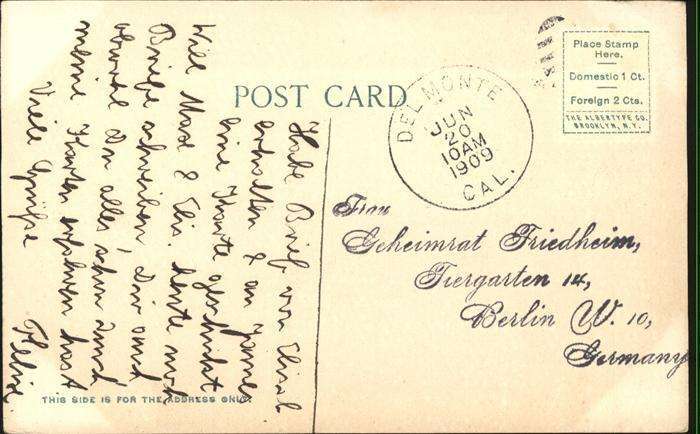 POST CARD
Place Stamp
Here.
Domestic 1 Ct.
Foreign 2 Cts.
THE ALBERTYPE CO.
BROOKLYN, N.Y.
DEL MONTE
JUN
20
10AM
1909
CAL.
Frau
Geheimrat Friedheim,
Tiergarten 14,
Berlin W. 10,
Germany
Habe Brief von
erhalten & an
eine Karte geschickt
Will & heute
Briefe schreiben,
obwohl Du alles schon durch
meine Karten erfahren hast
Viele Grüße Felix.
THIS SIDE IS FOR THE ADDRESS ONLY.